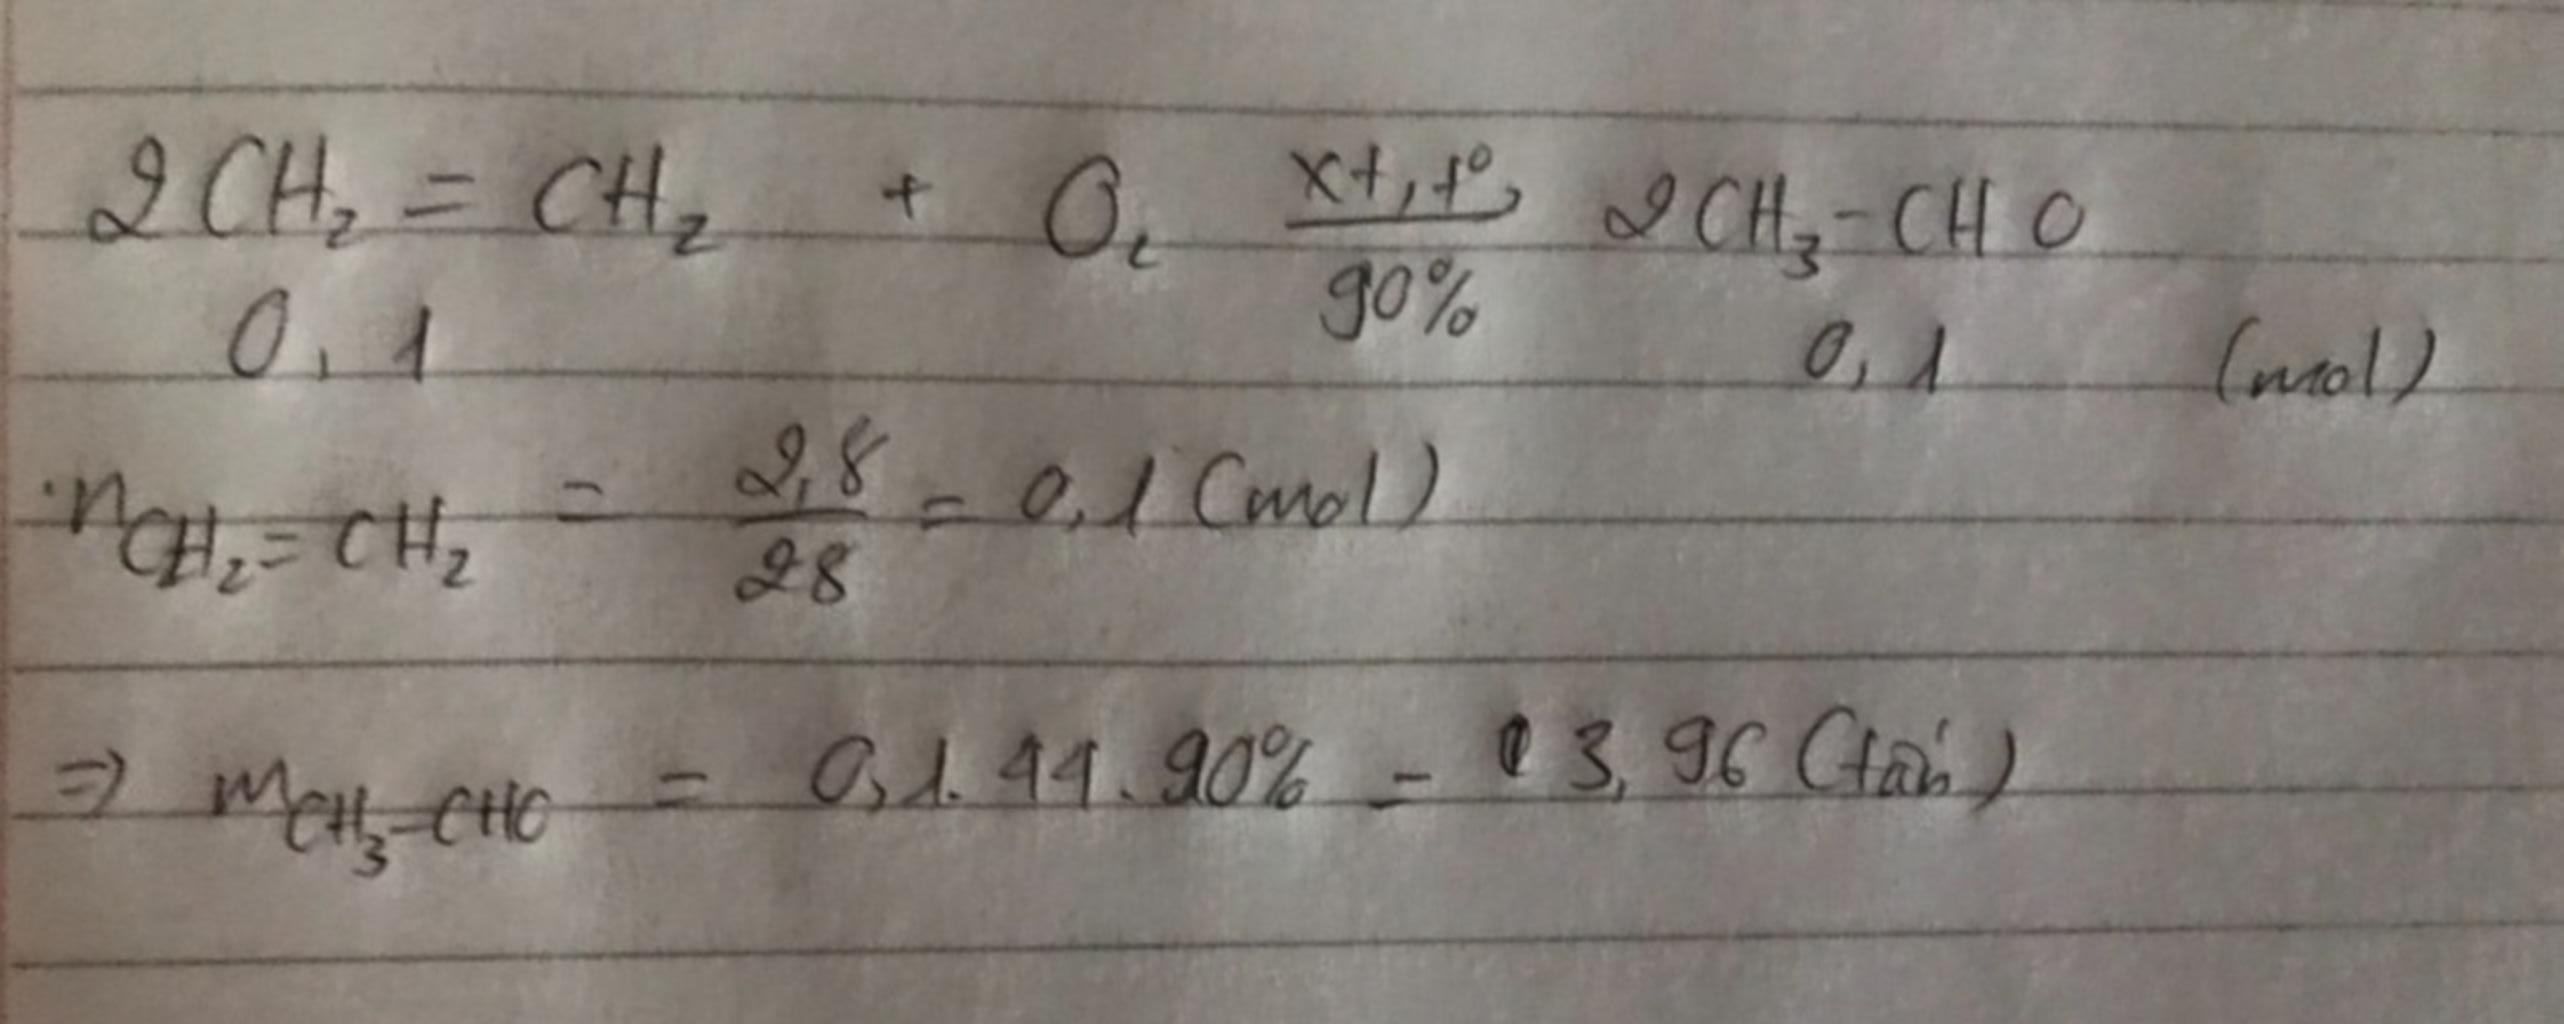 2CH₂ = CH₂ + O₂ xt, t° 90% → 2CH₃-CHO
0,1 0,1 (mol)
n CH₂=CH₂ = 2,8/28 = 0,1 (mol)
⇒ m CH₃-CHO = 0,1.44.90% = 3,96 (tấn)